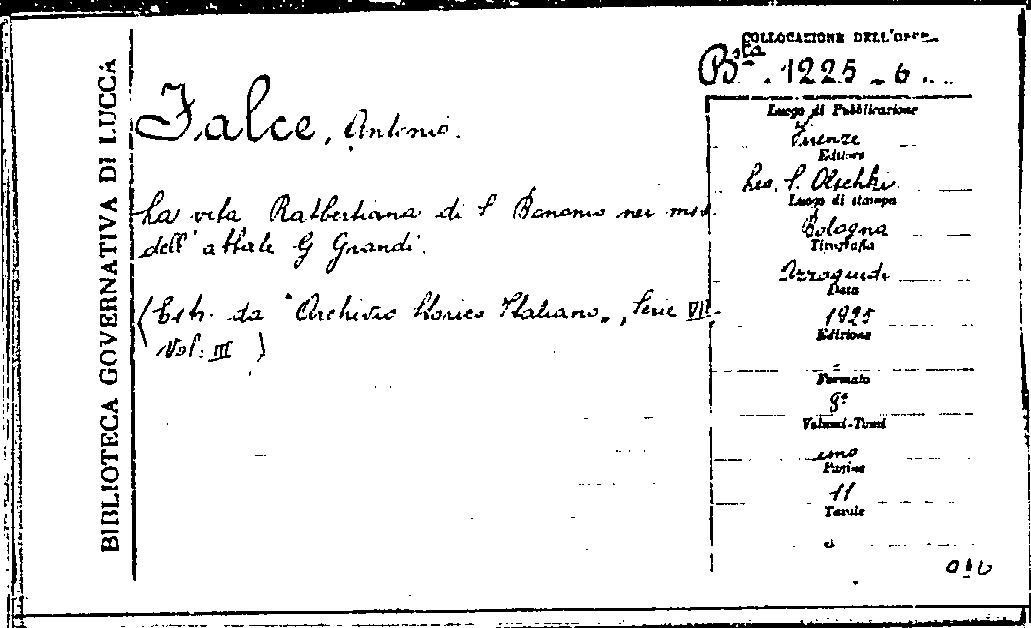 BIBLIOTECA GOVERNATIVA DI LUCCA
COLLOCAZIONE DELL'OPERA
Bta. 1225 - 6
Falce, Antonio.
La vita Ratbertiana di S Bononio nei mss.
dell'abbate G Grandi.
(Estr. da "Archivio Storico Italiano", Serie VII
Vol: III)
Luogo di Pubblicazione
Firenze
Editore
Leo. S. Olschki
Luogo di stampa
Bologna
Tipografia
Azzoguidi
Data
1925
Edizione
-
Formato
8º
Volumi-Tomi
uno
Pagine
11
Tavole